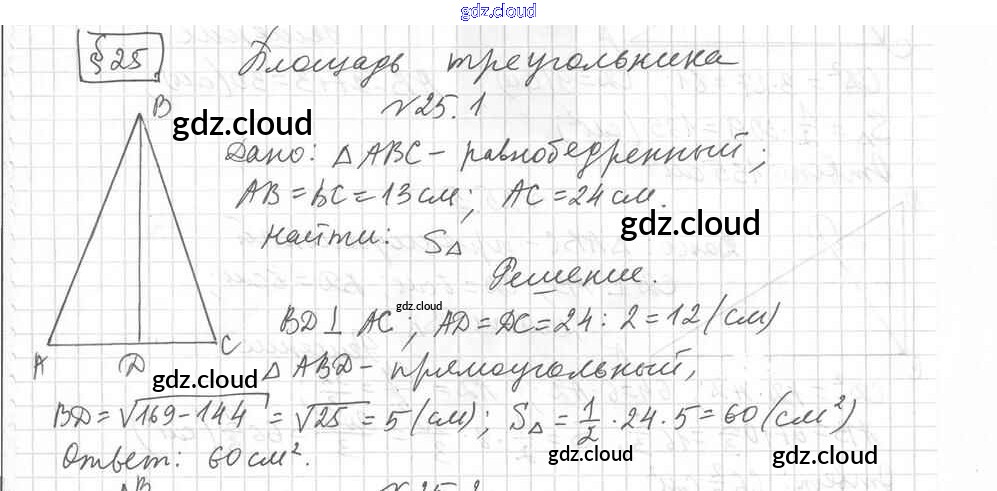 gdz.cloud
§ 25 Площадь треугольника
№25.1
B
gdz.cloud
Дано: △ABC – равнобедренный;
AB = BC = 13 см; AC = 24 см.
gdz.cloud
Найти: S△
Решение.
gdz.cloud
BD ⊥ AC; AD = DC = 24 : 2 = 12 (см)
A D C
△ ABD – прямоугольный,
gdz.cloud
BD = √169-144 = √25 = 5 (см); S△ = 1/2 · 24 · 5 = 60 (см²)
Ответ: 60 см².
gdz.cloud gdz.cloud